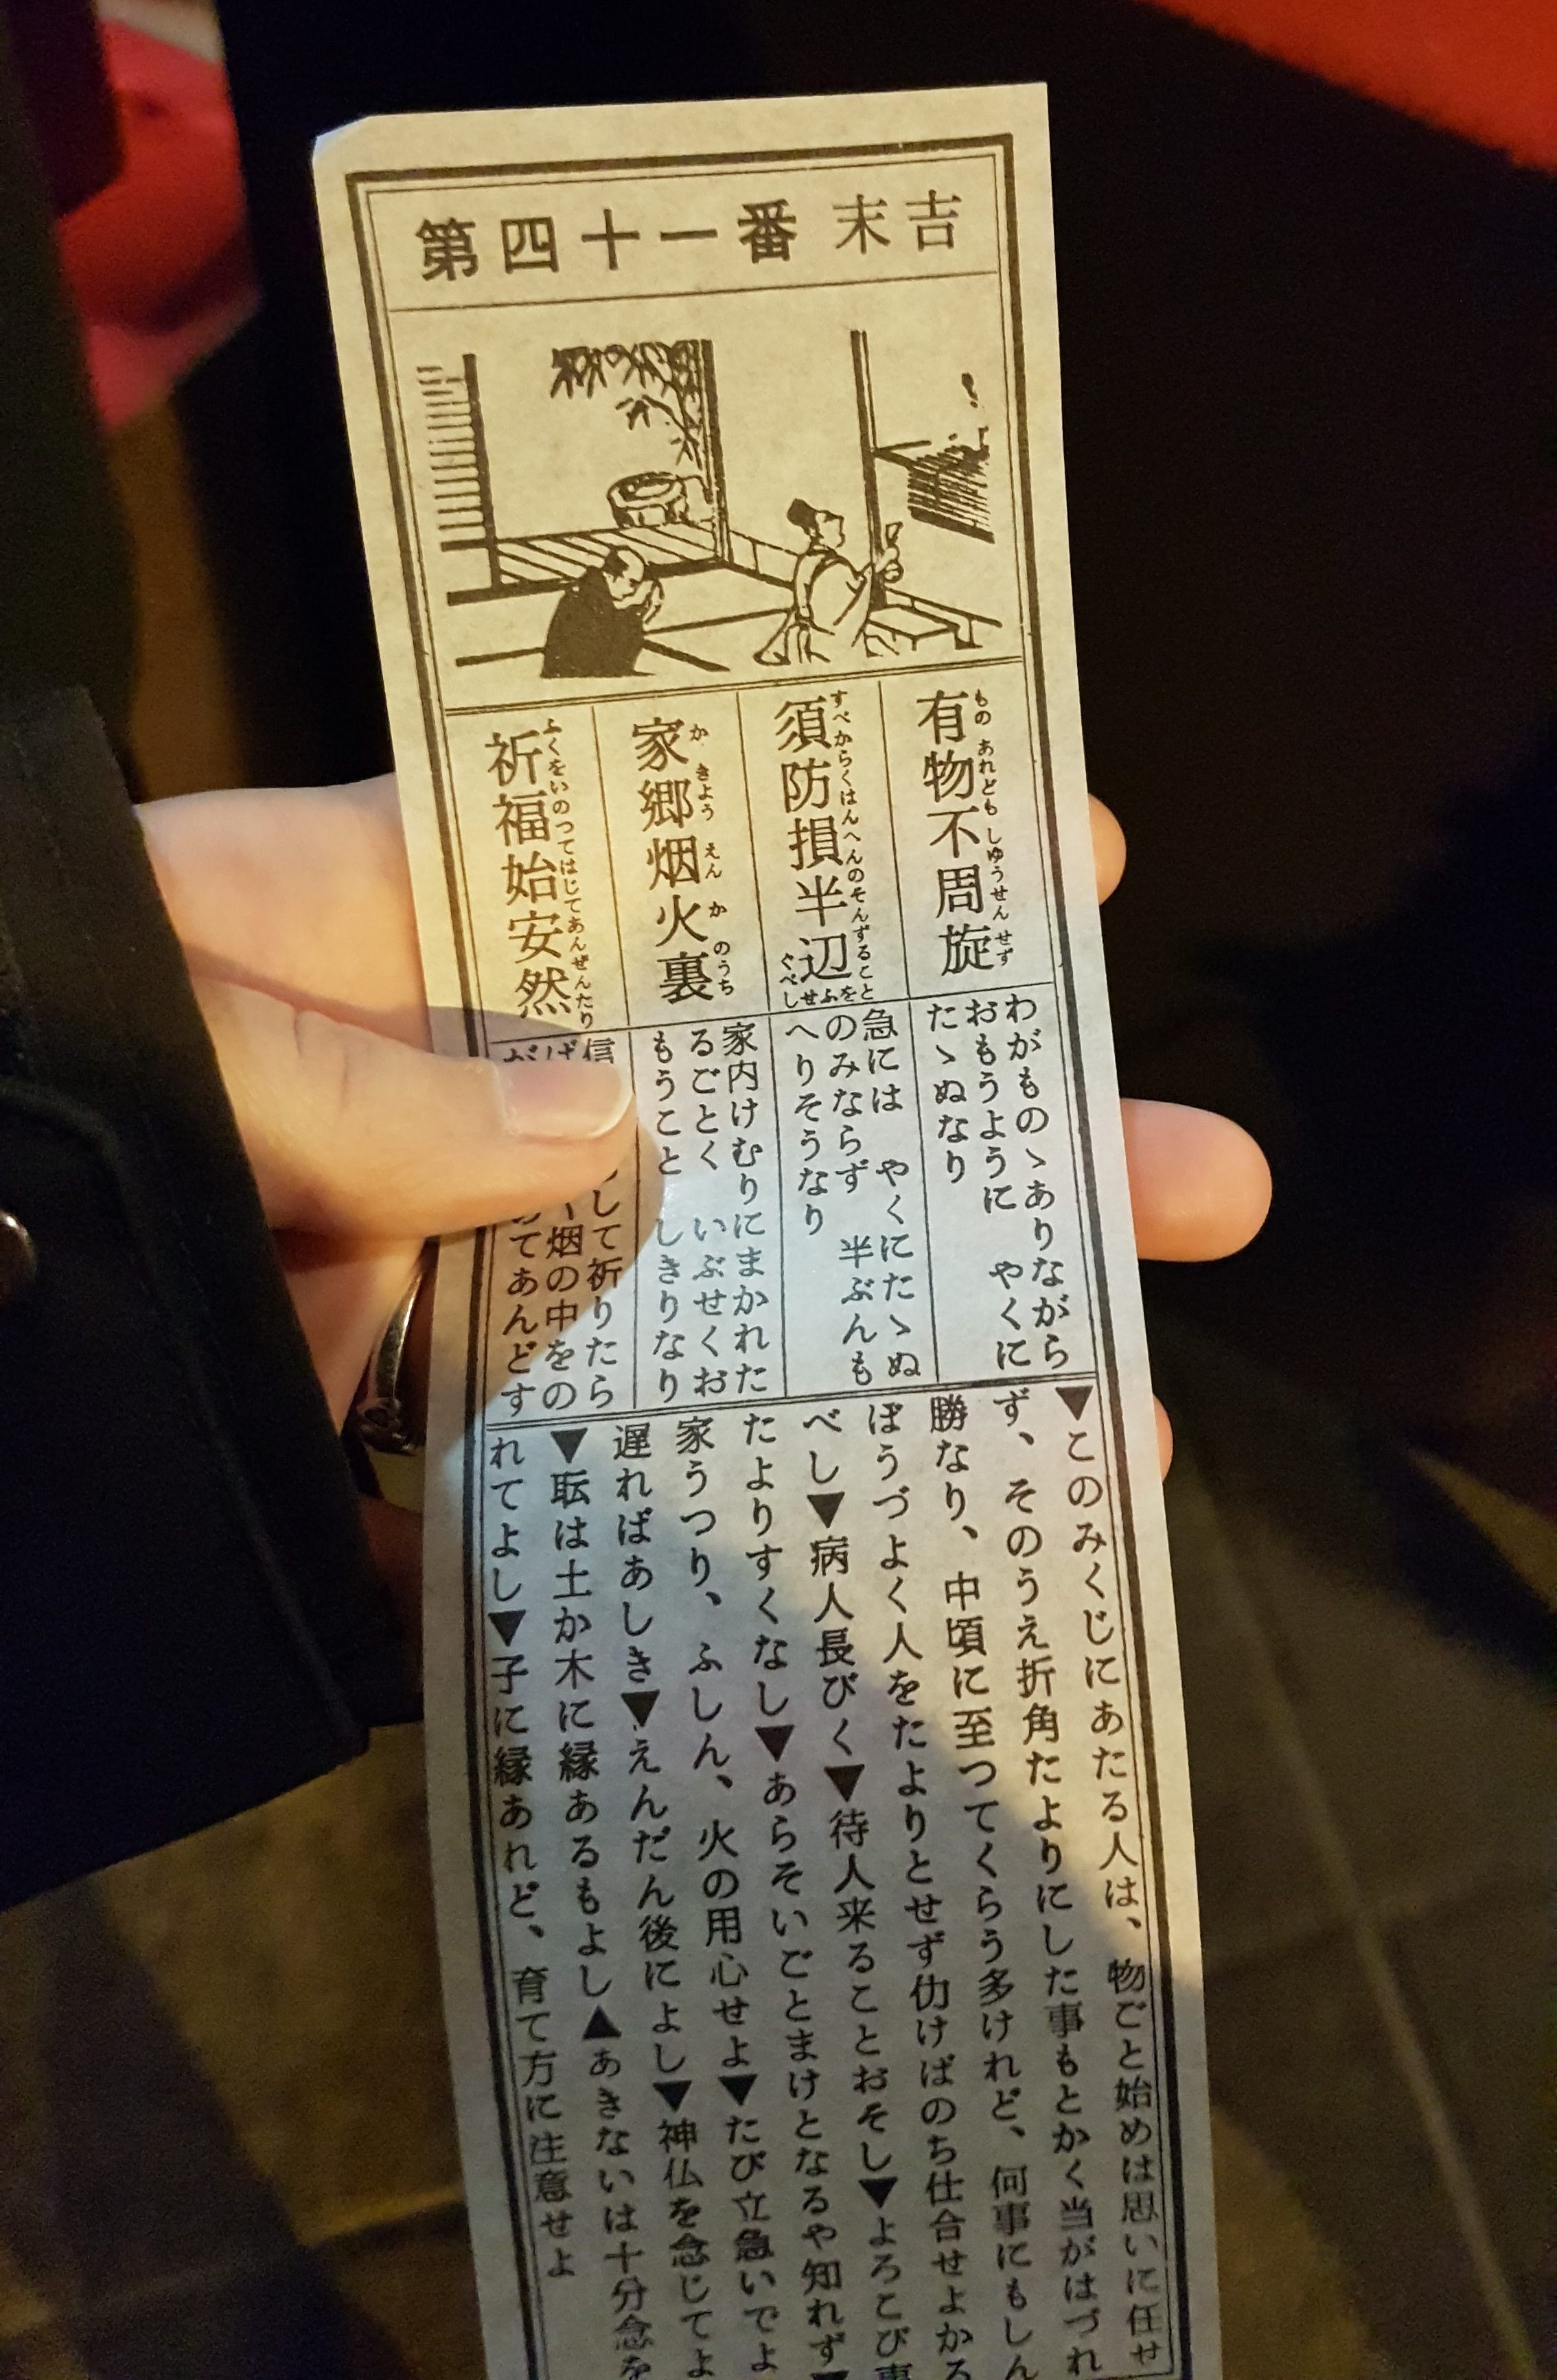 第四十一番 末吉
有物不周旋
もの あれども しゆうせん せず
須防損半辺
すべからくはんへんのそんずることをふせぐべし
家郷烟火裏
か きよう えん か のうち
祈福始安然
ふくをいのつてはじてあんぜんたり
わがものゝありながら
おもうように やくに
たゝぬなり
急には やくにたゝぬ
のみならず 半ぶんも
へりそうなり
家内けむりにまかれた
るごとく いぶせくお
もうこと しきりなり
信 して祈りたら
ば 烟の中をの
が てあんどす
▼このみくじにあたる人は、物ごと始めは思いに任せ
ず、そのうえ折角たよりにした事もとかく当がはづれ
勝なり、中頃に至つてくらう多けれど、何事にもしん
ぼうづよく人をたよりとせず仂けばのち仕合せよかる
べし▼病人長びく▼待人来ることおそし▼よろこび事
たよりすくなし▼あらそいごとまけとなるや知れず▼
家うつり、ふしん、火の用心せよ▼たび立急いでよ
遅ればあしき▼えんだん後によし▼神仏を念じてよ
▼耺は土か木に縁あるもよし▲あきないは十分念を
れてよし▼子に縁あれど、育て方に注意せよ